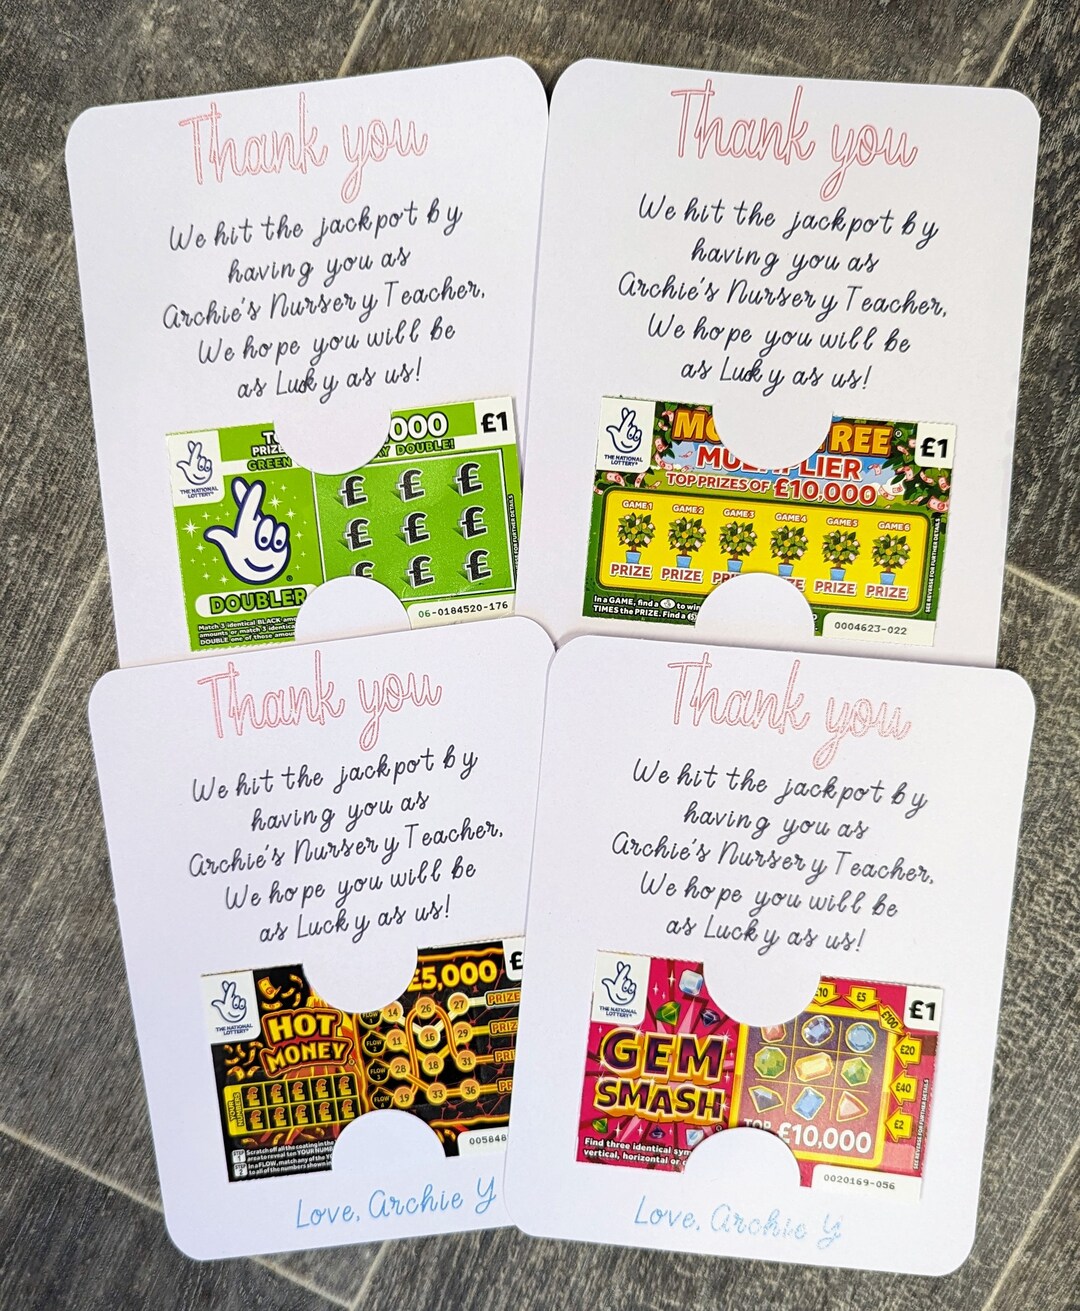 Thank you
We hit the jackpot by
having you as
Archie's Nursery Teacher,
We hope you will be
as Lucky as us!
THE NATIONAL
LOTTERY®
000
£1
PRIZE
Y DOUBLE!
GREEN
£ £ £
£ £ £
£ £ £
DOUBLER
Match 3 identical BLACK
amounts or match 3
DOUBLE one of those
SEE REVERSE FOR FURTHER DETAILS
06-0184520-176
Thank you
We hit the jackpot by
having you as
Archie's Nursery Teacher,
We hope you will be
as Lucky as us!
THE NATIONAL
LOTTERY®
REE
£1
TOP PRIZES OF £10,000
GAME 1 GAME 2 GAME 3 GAME 4 GAME 5 GAME 6
PRIZE PRIZE PRIZE PRIZE
In a GAME, find a to win
TIMES the PRIZE. Find a
SEE REVERSE FOR FURTHER DETAILS
0004623-022
Thank you
We hit the jackpot by
having you as
Archie's Nursery Teacher,
We hope you will be
as Lucky as us!
THE NATIONAL
LOTTERY®
£5,000
£
HOT
MONEY
YOUR NUMBERS
£ £ £ £ £
£ £ £ £ £
FLOW 1 14 26 27 PRIZE
FLOW 2 11 16 29
FLOW 3 28 18 31
FLOW 4 19 33 36
STEP 1 Scratch off all the coating in the
area to reveal ten YOUR
STEP 2 In a FLOW, match any of the
to all of the numbers shown
005848
Love, Archie Y
Thank you
We hit the jackpot by
having you as
Archie's Nursery Teacher,
We hope you will be
as Lucky as us!
THE NATIONAL
LOTTERY®
£10 £5
£1
£100
£20
£40
£2
GEM
SMASH
TOP £10,000
Find three identical
vertical, horizontal or
SEE REVERSE FOR FURTHER DETAILS
0020169-056
Love, Archie Y